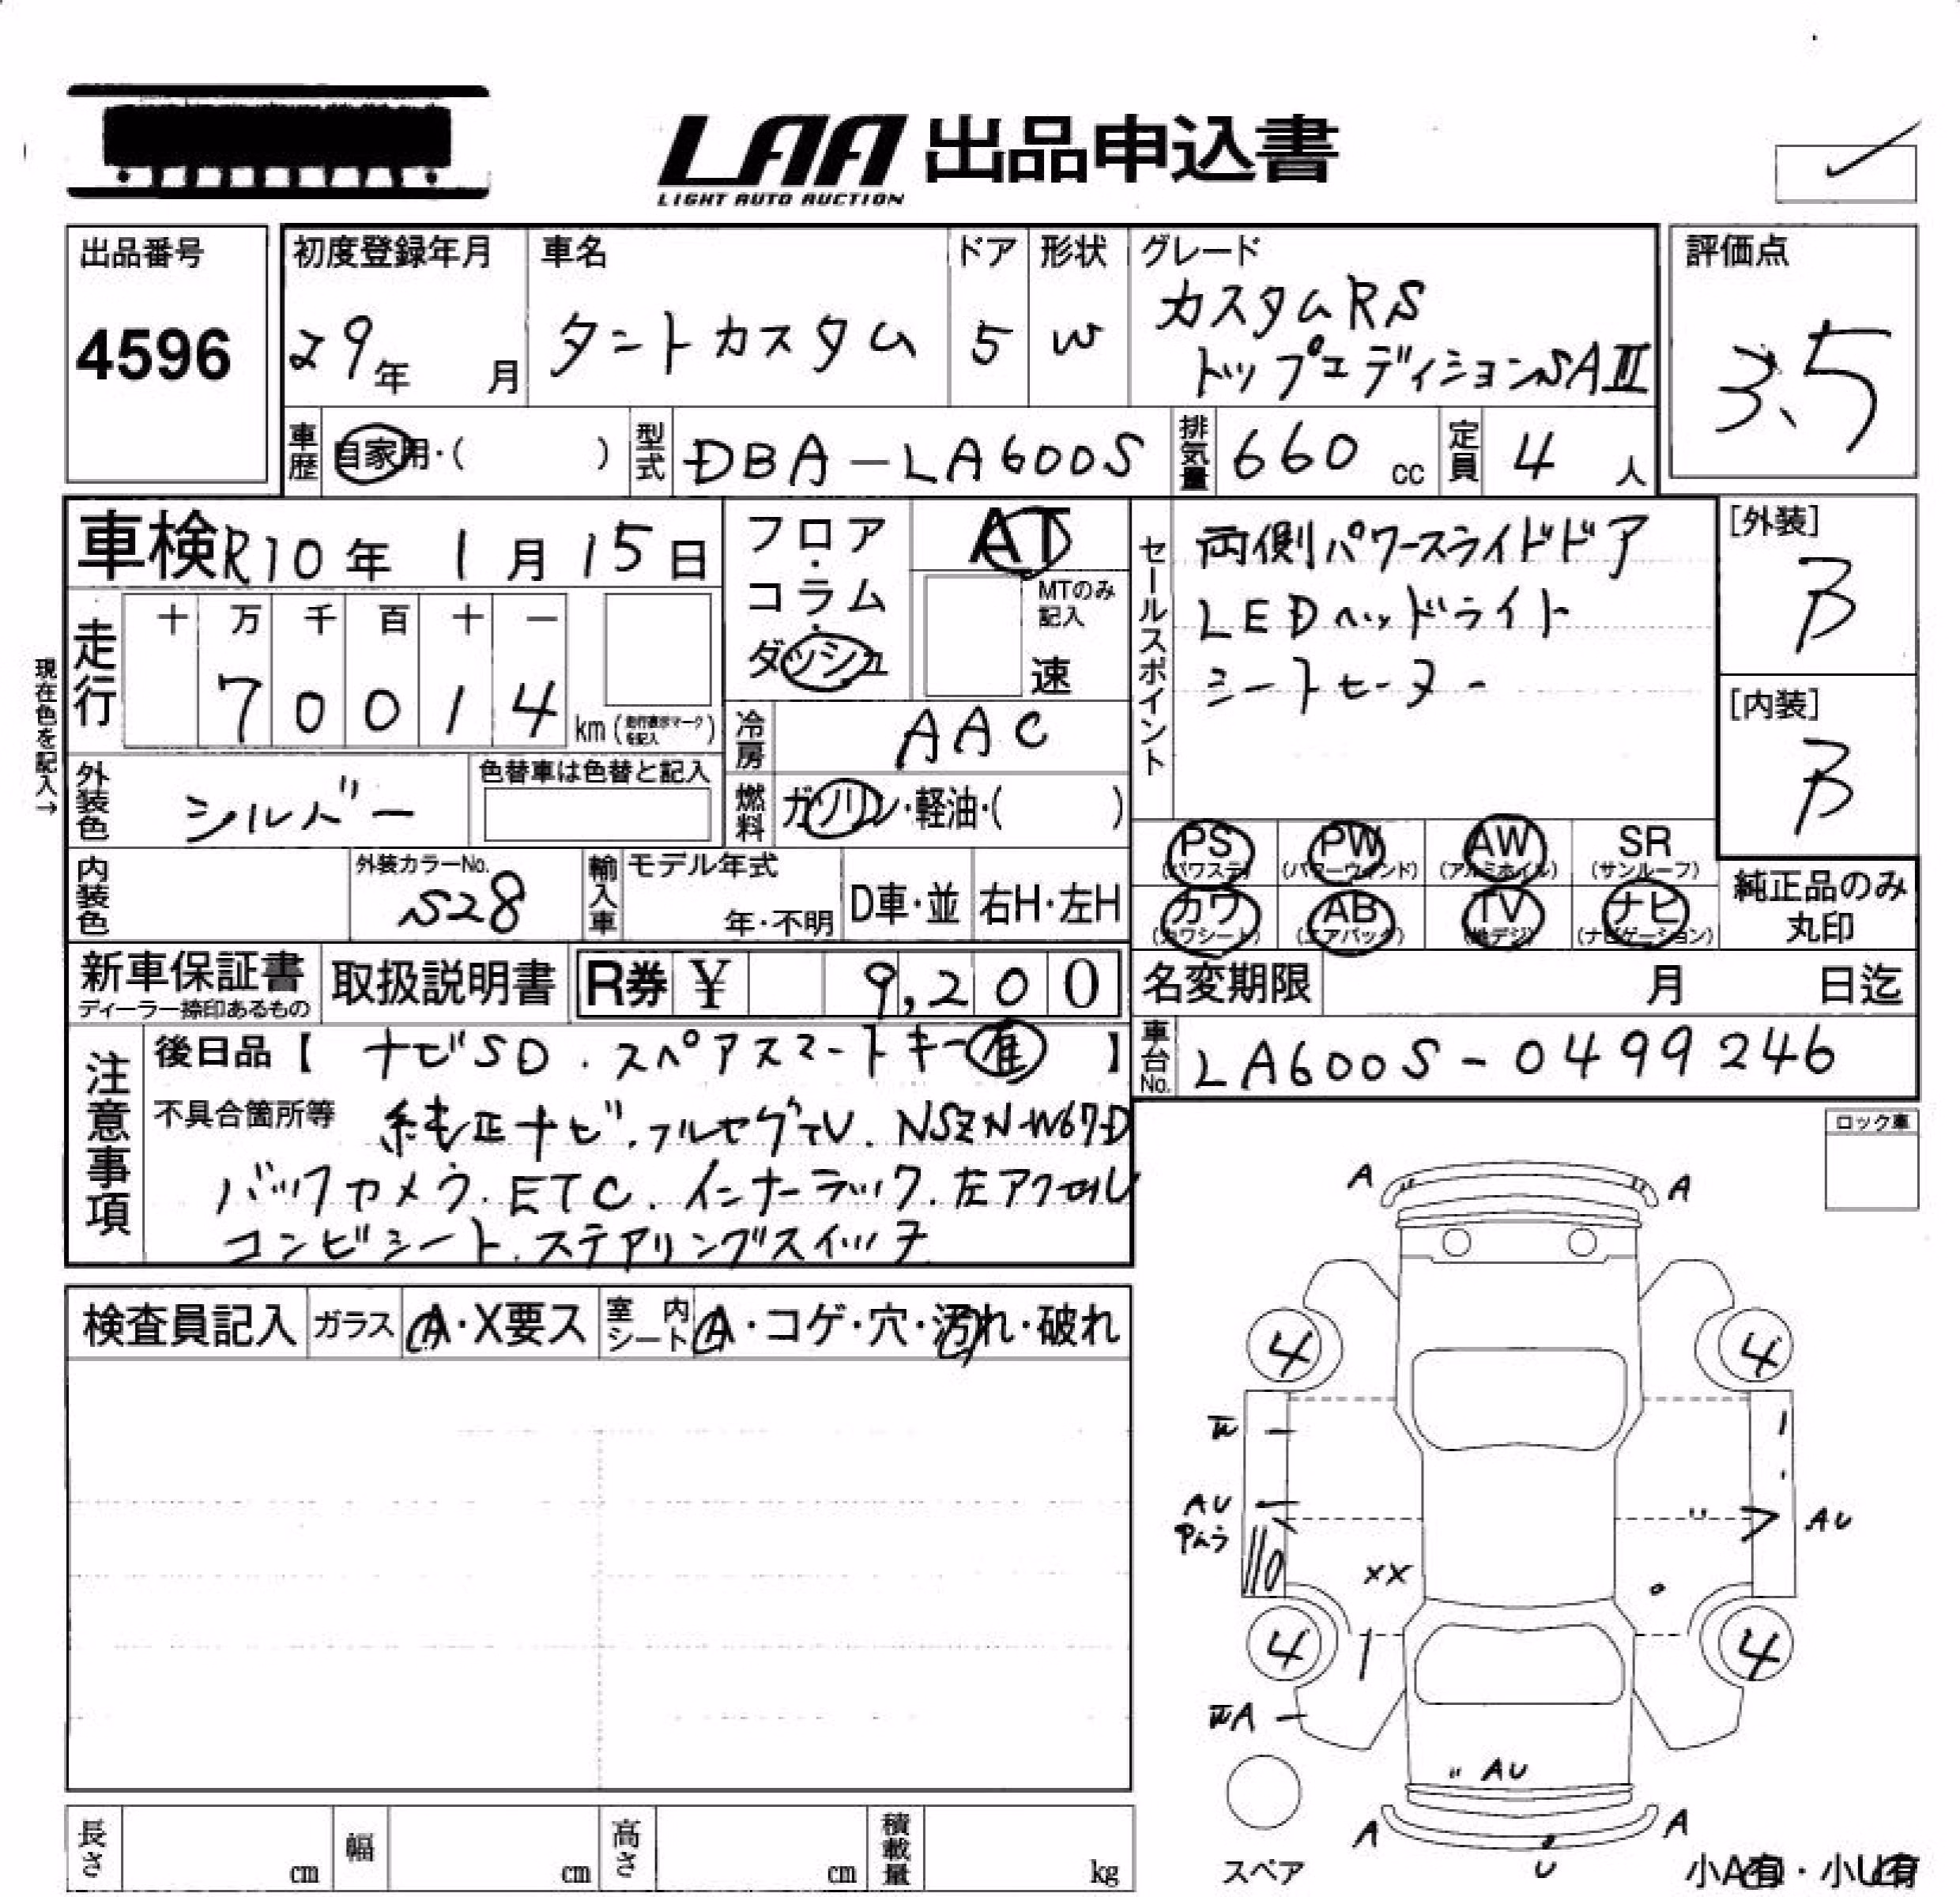 LAA 出品申込書
LIGHT AUTO AUCTION
出品番号
4596
初度登録年月
29年 月
車名
タントカスタム
ドア
5
形状
W
グレード
カスタムRS
トップエディションSAⅢ
評価点
3.5
車歴
自家用・( )
型式
DBA-LA600S
排気量
660 cc
定員
4 人
車検 R10年 1月 15日
走行
十 万 千 百 十 一
7 0 0 1 4 km(走行表示マークを記入)
現在色を記入→
フロア・コラム・ダッシュ
AT
MTのみ記入
速
冷房
AAC
燃料
ガソリン・軽油・( )
外装色
シルバー
色替車は色替と記入
内装色
外装カラーNo.
S28
輸入車
モデル年式
年・不明
D車・並
右H・左H
セールスポイント
両側パワースライドドア
LEDヘッドライト
シートヒーター
[外装]
B
[内装]
B
PS (パワステ)
PW (パワーウィンド)
AW (アルミホイル)
SR (サンルーフ)
カワ (カワシート)
AB (エアバック)
TV (地デジ)
ナビ (ナビゲーション)
純正品のみ丸印
新車保証書
ディーラー捺印あるもの
取扱説明書
R券 ¥ 9,200
名変期限 月 日迄
車台No.
LA600S-0499246
注意事項
後日品【 ナビSD.スペアスマートキー 】
不具合箇所等 純正ナビ.フルセグTV.NSZN-W67D
バックカメラ.ETC.インナーラック.左アクセル
コンビシート.ステアリングスイッチ
ロック車
検査員記入
ガラス
A・X要ス
室内シート
A・コゲ・穴・汚れ・破れ
A
A
4
4
AU
AU
XX
4
4
AU
A
A
U
スペア
小A有・小U有
長さ cm
幅 cm
高さ cm
積載量 kg